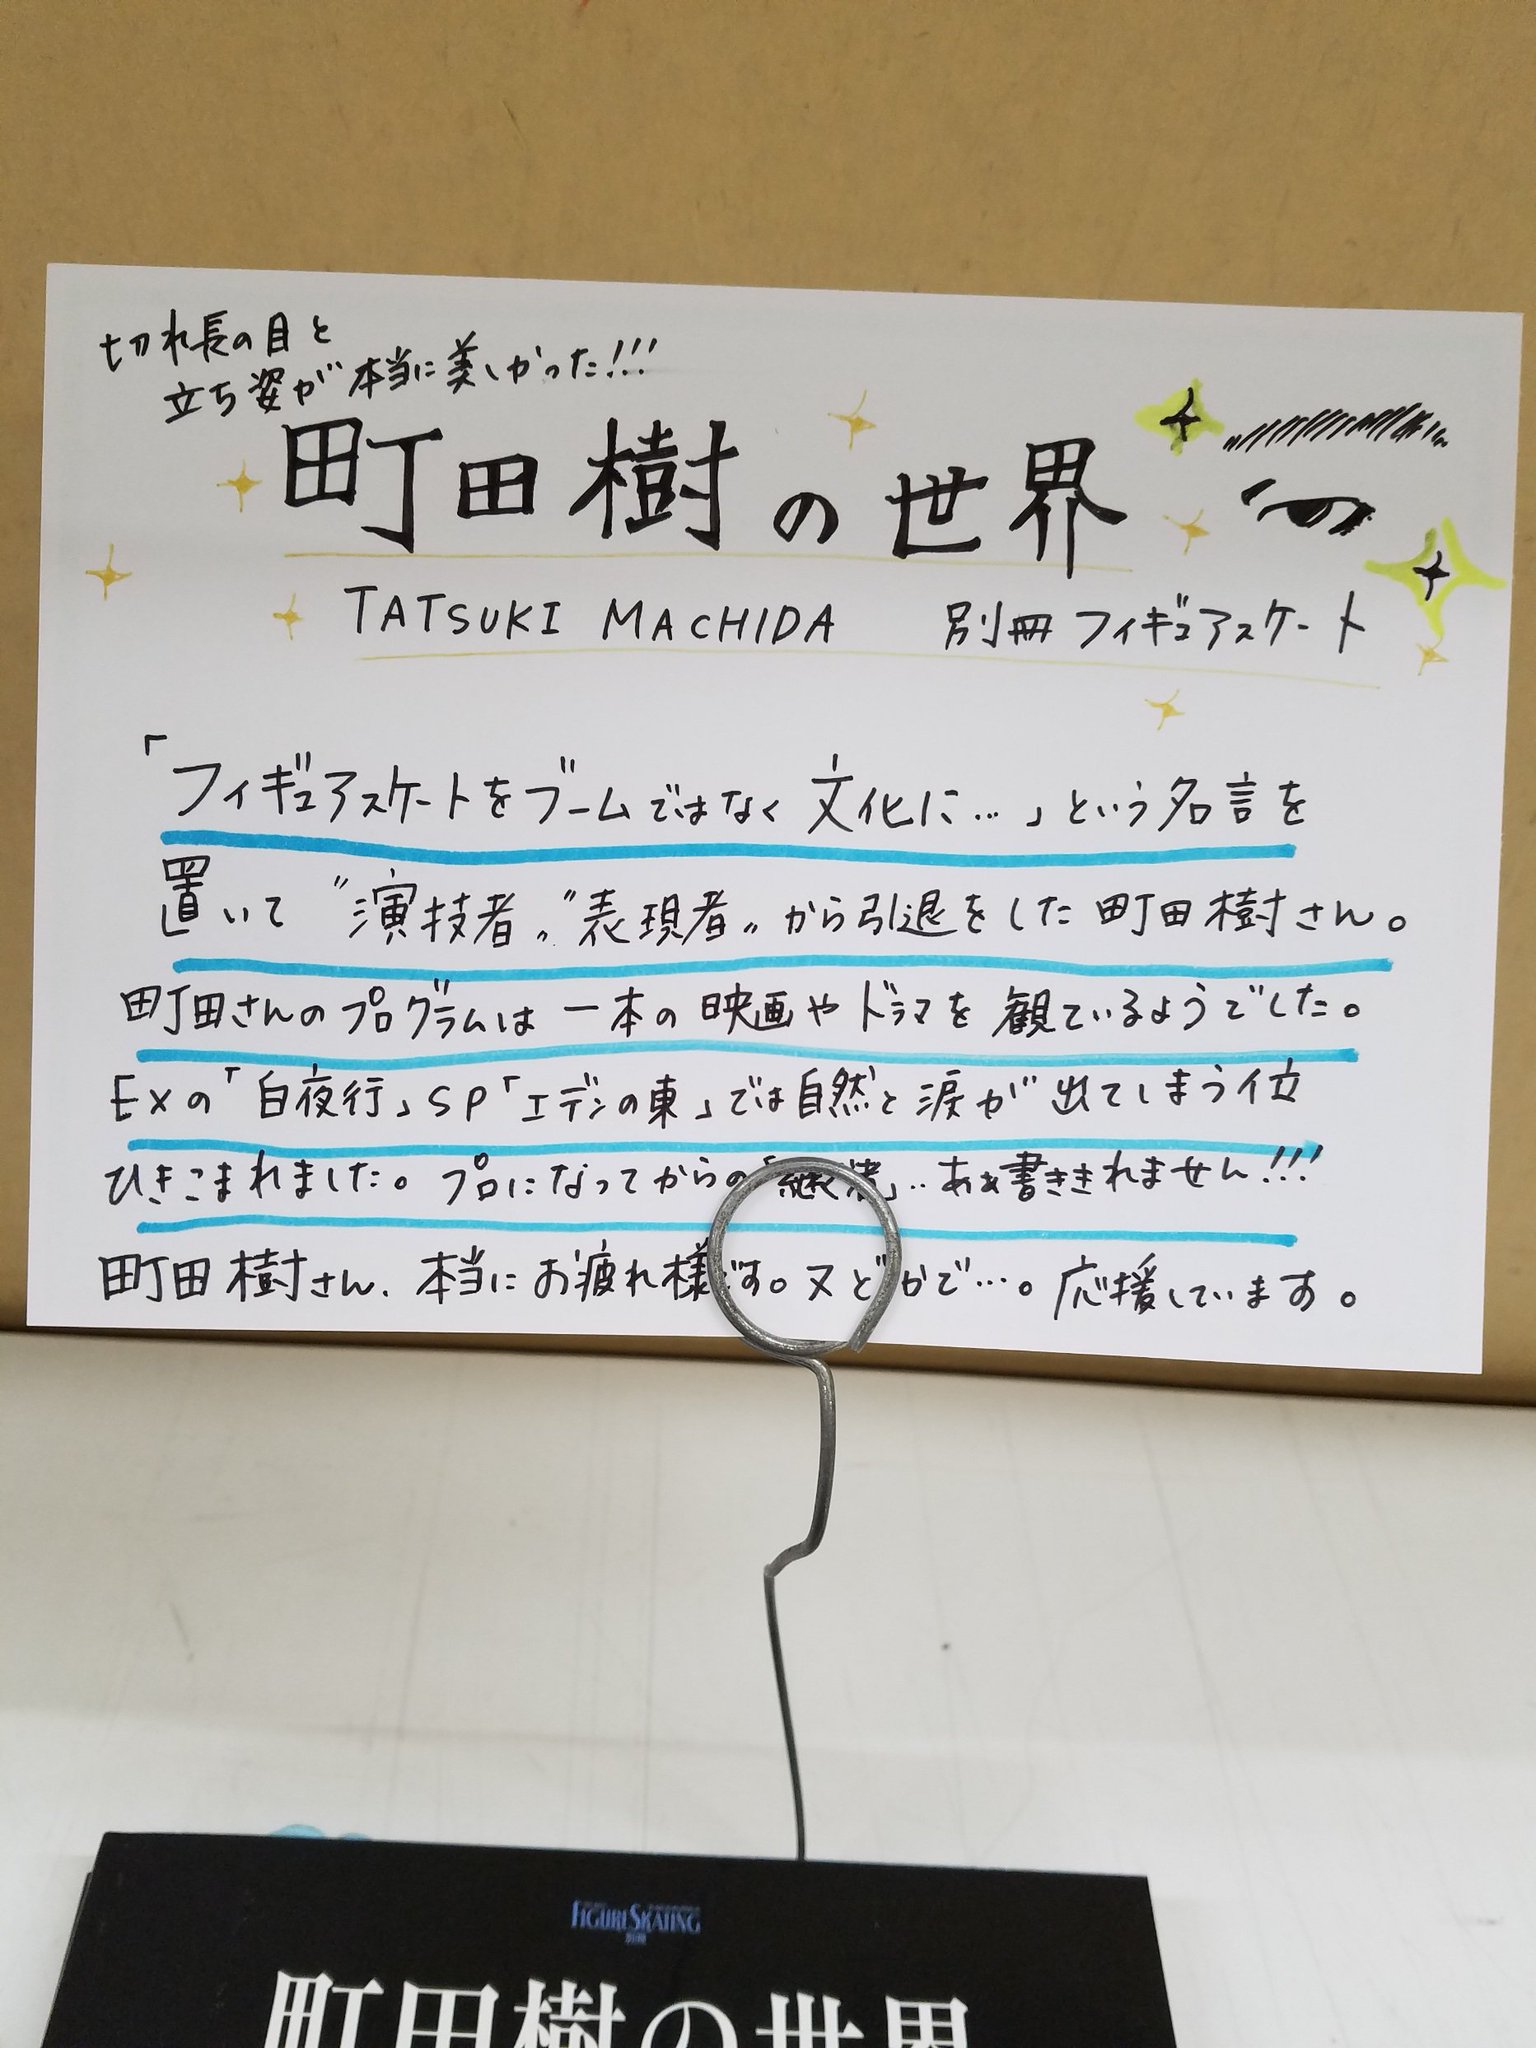 切れ長の目と
立ち姿が本当に美しかった!!!
町田樹の世界
TATSUKI MACHIDA 別冊フィギュアスケート
「フィギュアスケートをブームではなく文化に…」という名言を
置いて〝演技者〟〝表現者〟から引退をした町田樹さん。
町田さんのプログラムは一本の映画やドラマを観ているようでした。
EXの「白夜行」SP「エデンの東」では自然と涙が出てしまう位
ひきこまれました。プロになってからの「継ぐ者」‥あぁ書ききれません!!!
町田樹さん、本当にお疲れ様です。又どかで…。応援しています。
FIGURE SKATING
別冊
町田樹の世界